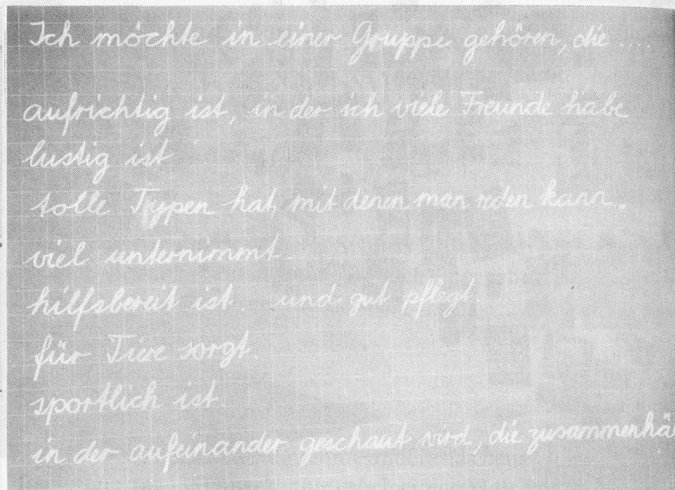 Ich möchte in einer Gruppe gehören, die ....
aufrichtig ist, in der ich viele Freunde habe
lustig ist
tolle Typen hat, mit denen man reden kann.
viel unternimmt.
hilfsbereit ist. und gut pflegt.
für Tiere sorgt.
sportlich ist.
in der aufeinander geschaut wird, die zusammenhä